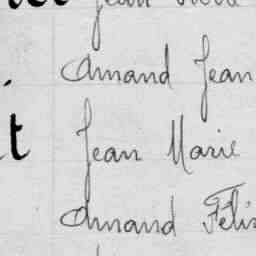 Jean
Amand Jean
t Jean Marie
Amand Féli